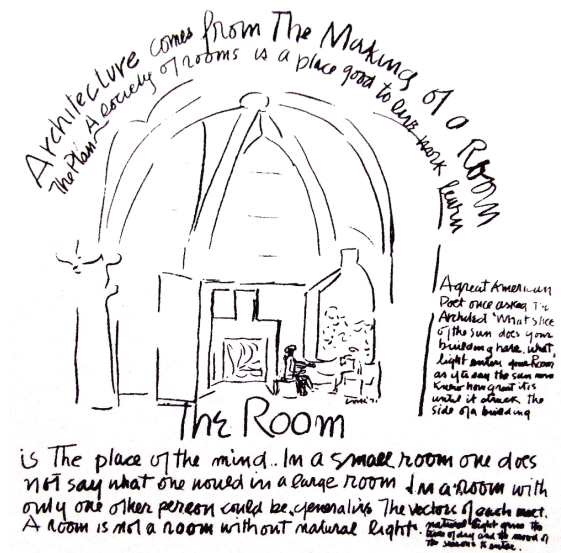 Architecture comes from The Making of a Room
The Plan A society of rooms is a place good to live work learn
A great American
Poet once asked the
Architect 'What slice
of the sun does your
building have, what
light enters your Room
as if to say the sun never
knew how great it is
until it struck the
side of a building
The Room
is The place of the mind.. In a small room one does
not say what one would in a large room In a room with
only one other person could be generative The vectors of each meet.
A room is not a room without natural light. natural light gives the
time of day and the mood of
the seasons to enter.